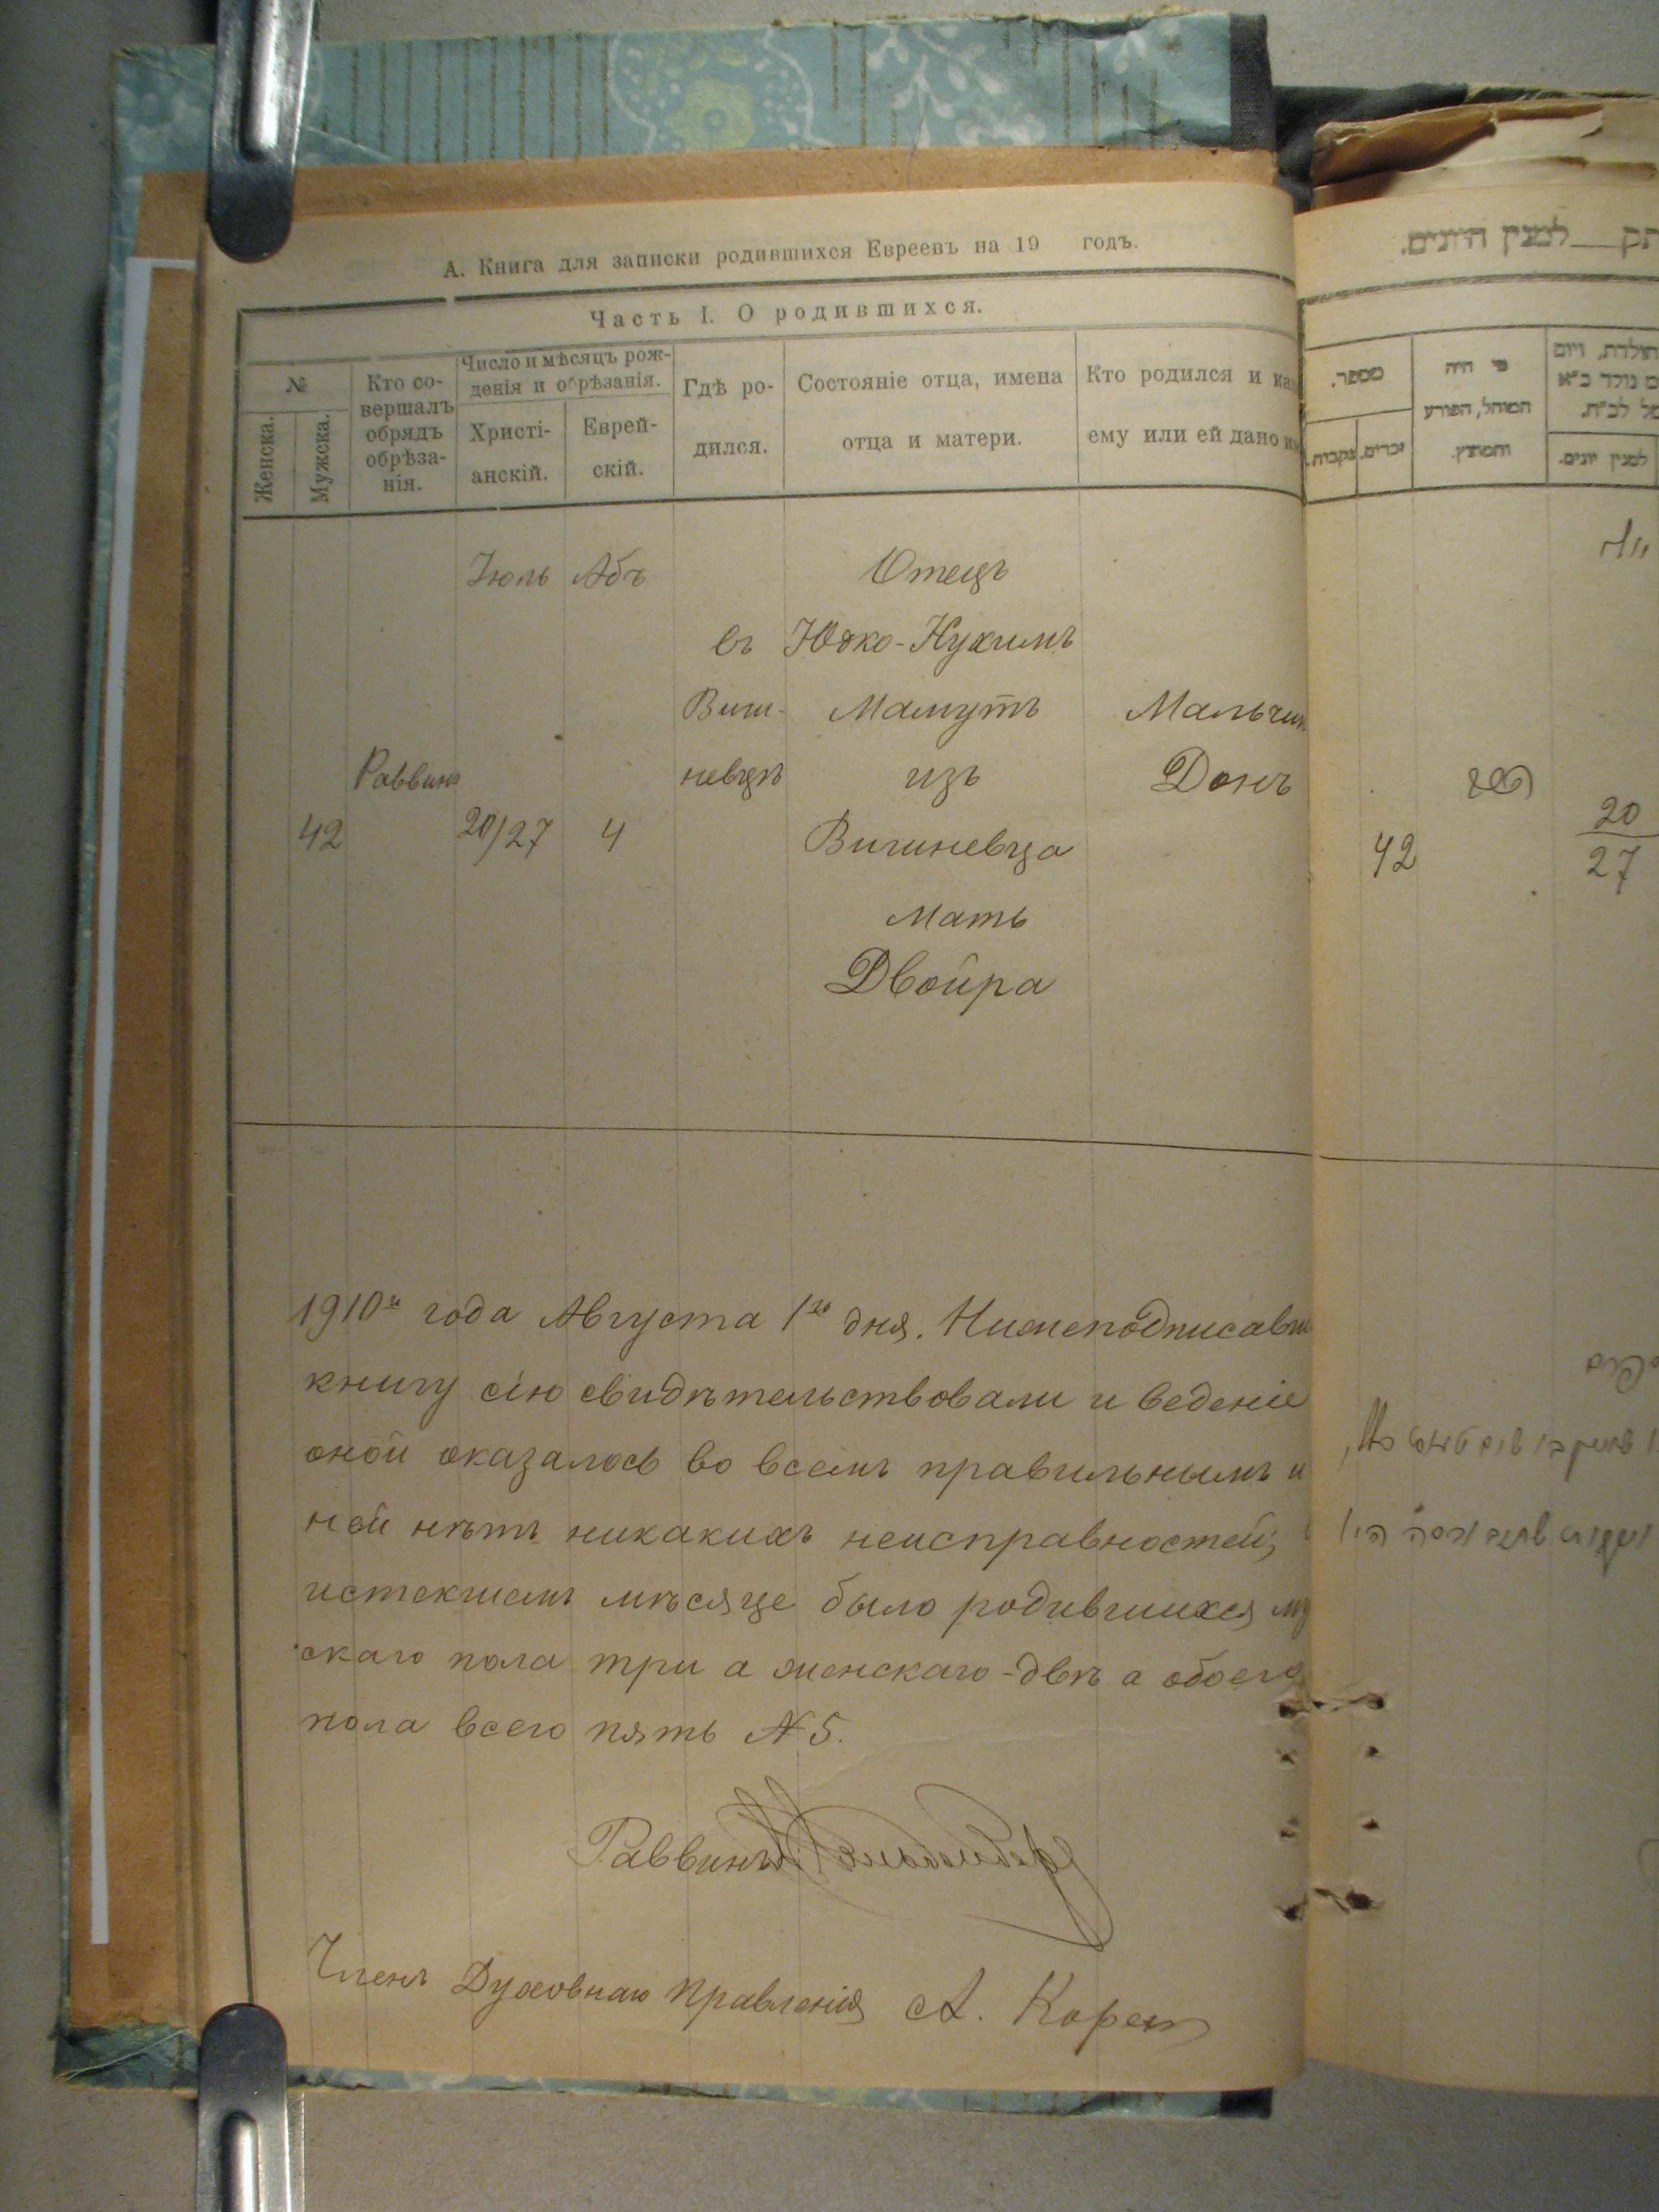 А. Книга для записки родившихся Евреевъ на 19 годъ.
Часть I. О родившихся.
№
Женска.
Мужска.
Кто со-
вершалъ
обрядъ
обрѣза-
нія.
Число и мѣсяцъ рож-
денія и обрѣзанія.
Христі-
анскій.
Еврей-
скій.
Гдѣ ро-
дился.
Состояніе отца, имена
отца и матери.
Кто родился и ка
ему или ей дано им
42
Раввинъ
Іюль
20/27
Абъ
4
въ
Виш-
невцѣ
Отецъ
Юдко-Нухимъ
Мамутъ
изъ
Вишневца
Мать
Двойра
Мальчик
Донъ
1910го года Августа 1го дня. Нижеподписавши
книгу сію свидѣтельствовали и веденіе
оной оказалось во всемъ правильнымъ и
ней нѣтъ никакихъ неисправностей;
истекшемъ мѣсяце было родившихся му
скаго пола три а женскаго - двѣ а обоего
пола всего пять № 5.
Раввинъ
Членъ Духовнаго Правленія А. Корен
למנין היונים.
מספר.
זכרים.
נקבות.
מי היה
המוהל, הפורע
והמוצץ.
למנין יונים.
42
20
27